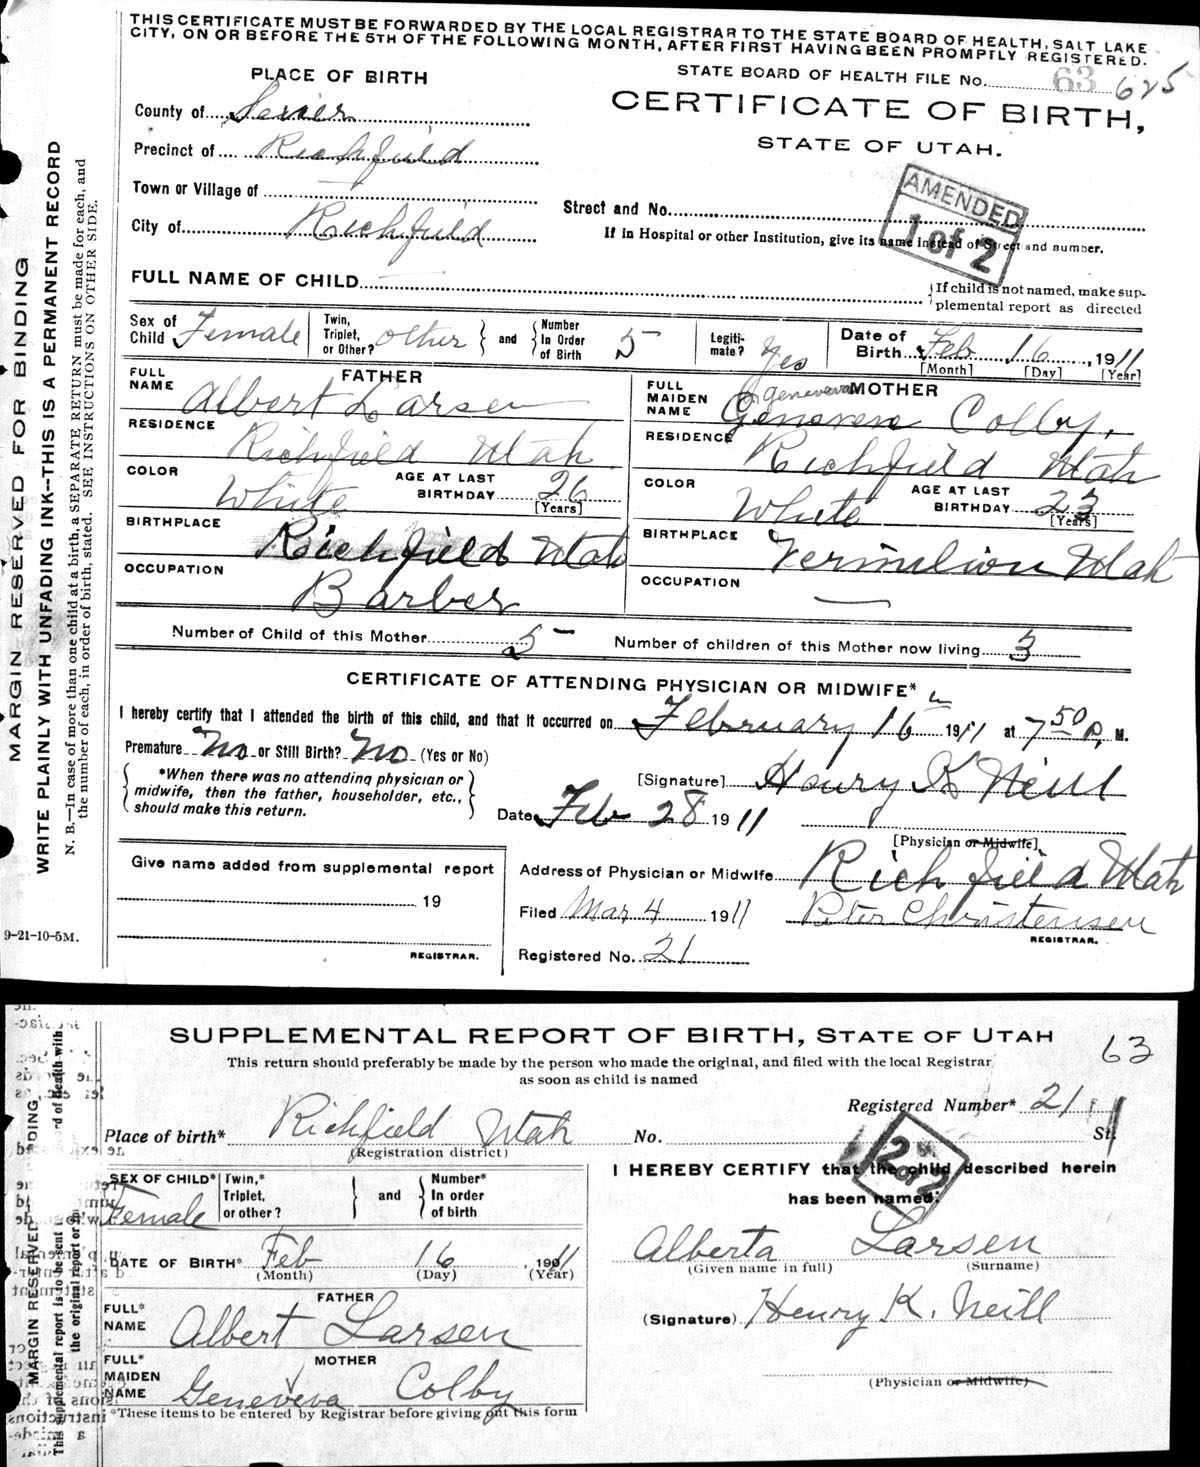 THIS CERTIFICATE MUST BE FORWARDED BY THE LOCAL REGISTRAR TO THE STATE BOARD OF HEALTH, SALT LAKE
CITY, ON OR BEFORE THE 5TH OF THE FOLLOWING MONTH, AFTER FIRST HAVING BEEN PROMPTLY REGISTERED.
PLACE OF BIRTH
STATE BOARD OF HEALTH FILE No. 63 625
County of Sevier
CERTIFICATE OF BIRTH,
Precinct of Richfield
STATE OF UTAH.
AMENDED
1 of 2
Town or Village of
Street and No.
City of Richfield
If in Hospital or other Institution, give its name instead of Street and number.
FULL NAME OF CHILD
If child is not named, make sup-
plemental report as directed
Sex of Child Female
Twin, Triplet, or Other? other
and
Number In Order of Birth 5
Legiti-mate? Yes
Date of Birth Feb 16, 1911
[Month] [Day] [Year]
FATHER
FULL NAME Albert Larsen
RESIDENCE Richfield Utah
COLOR White
AGE AT LAST BIRTHDAY 26
[Years]
BIRTHPLACE Richfield Utah
OCCUPATION Barber
MOTHER
Geneveva
FULL MAIDEN NAME Geneveve Colby.
RESIDENCE Richfield Utah
COLOR White
AGE AT LAST BIRTHDAY 23
[Years]
BIRTHPLACE Vermilion Utah
OCCUPATION —
Number of Child of this Mother 5
Number of children of this Mother now living 3
CERTIFICATE OF ATTENDING PHYSICIAN OR MIDWIFE*
I hereby certify that I attended the birth of this child, and that it occurred on February 16 1911 at 7 50 P. M.
Premature No or Still Birth? No (Yes or No)
*When there was no attending physician or
midwife, then the father, householder, etc.,
should make this return.
[Signature] Henry K Neill
Date Feb 28 1911
[Physician or Midwife]
Give name added from supplemental report
19
REGISTRAR.
Address of Physician or Midwife Richfield Utah
Filed Mar 4 1911 Peter Christensen
REGISTRAR.
Registered No. 21
9-21-10-5M.
MARGIN RESERVED FOR BINDING
WRITE PLAINLY WITH UNFADING INK—THIS IS A PERMANENT RECORD
N. B.—In case of more than one child at a birth, a SEPARATE RETURN must be made for each, and
the number of each, in order of birth, stated. SEE INSTRUCTIONS ON OTHER SIDE.
SUPPLEMENTAL REPORT OF BIRTH, STATE OF UTAH
63
This return should preferably be made by the person who made the original, and filed with the local Registrar
as soon as child is named
Registered Number* 21
Place of birth* Richfield Utah
No. St.
(Registration district)
2 of 2
SEX OF CHILD* Female
Twin,* Triplet, or other?
and
Number* In order of birth
DATE OF BIRTH* Feb 16, 1911
(Month) (Day) (Year)
FATHER
FULL* NAME Albert Larsen
MOTHER
FULL* MAIDEN NAME Geneveva Colby
*These items to be entered by Registrar before giving out this form
I HEREBY CERTIFY that the child described herein
has been named:
Alberta Larsen
(Given name in full) (Surname)
(Signature) Henry K. Neill
(Physician or Midwife)
MARGIN RESERVED